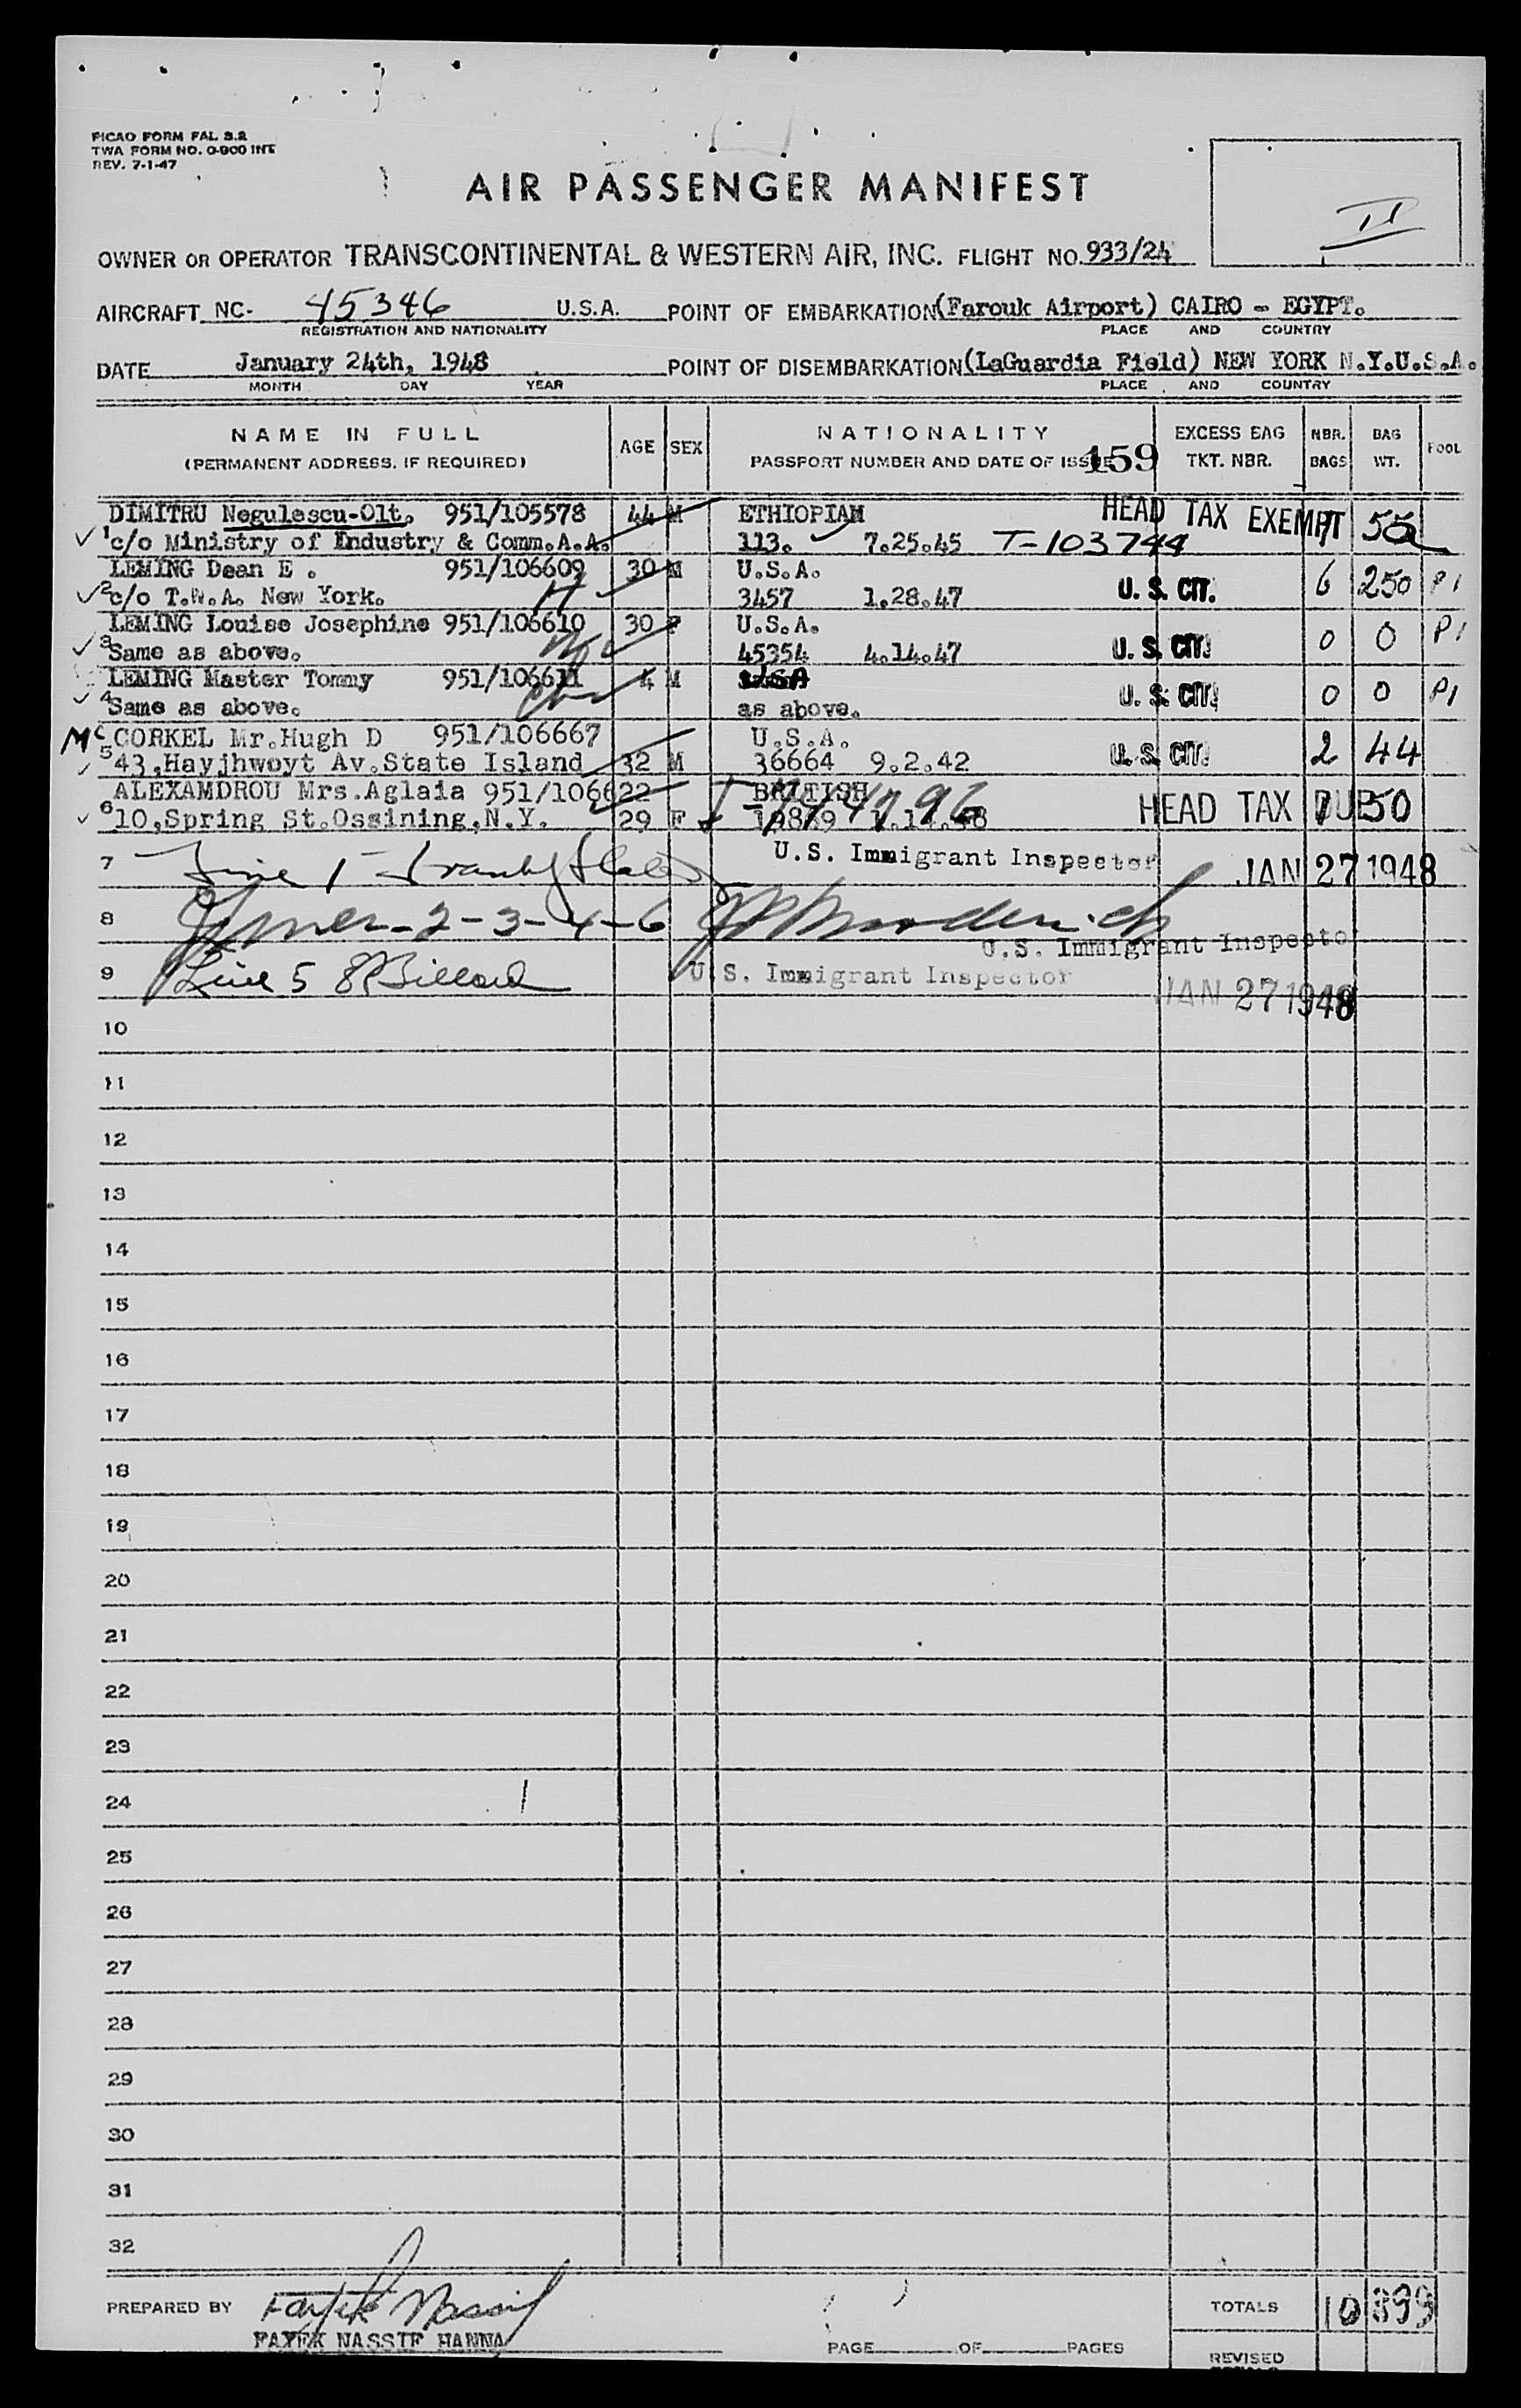 PICAO FORM FAL S.2
TWA FORM NO. O-900 INT
REV. 7-1-47
AIR PASSENGER MANIFEST
II
OWNER OR OPERATOR TRANSCONTINENTAL & WESTERN AIR, INC. FLIGHT NO. 933/24
AIRCRAFT NC- 45346 U.S.A. POINT OF EMBARKATION (Farouk Airport) CAIRO - EGYPT.
REGISTRATION AND NATIONALITY PLACE AND COUNTRY
DATE January 24th, 1948 POINT OF DISEMBARKATION (LaGuardia Field) NEW YORK N.Y.U.S.A.
MONTH DAY YEAR PLACE AND COUNTRY
NAME IN FULL AGE SEX NATIONALITY EXCESS BAG NBR. BAG POOL
(PERMANENT ADDRESS, IF REQUIRED) PASSPORT NUMBER AND DATE OF ISSUE 159 TKT. NBR. BAGS WT.
DIMITRU Negulescu-Olt. 951/105578 44 M ETHIOPIAN HEAD TAX EXEMPT 55
1 c/o Ministry of Industry & Comm.A.A. 113. 7.25.45 T-103744
LEMING Dean E . 951/106609 30 M U.S.A. 6 250 P1
2 c/o T.W.A. New York. 3457 1.28.47 U.S. CIT.
LEMING Louise Josephine 951/106610 30 F U.S.A. 0 0 P1
3 Same as above. 45354 4.14.47 U.S. CIT.
LEMING Master Tommy 951/106611 4 M USA 0 0 P1
4 Same as above. as above. U.S. CIT.
Mc CORKEL Mr.Hugh D 951/106667 U.S.A. 2 44
5 43,Hayjhwoyt Av.State Island 32 M 36664 9.2.42 U.S. CIT.
ALEXAMDROU Mrs.Aglaia 951/106622 BRITISH HEAD TAX DUE 1 50
6 10,Spring St.Ossining,N.Y. 29 F 19869 1.14.48
7 Line 1 U.S. Immigrant Inspector JAN 27 1948
8 2-3-4-6
U.S. Immigrant Inspector
9 Line 5 U.S. Immigrant Inspector JAN 27 1948
10
11
12
13
14
15
16
17
18
19
20
21
22
23
24
25
26
27
28
29
30
31
32
PREPARED BY Fayek Nassif TOTALS 10 399
FAYEK NASSIF HANNA PAGE OF PAGES REVISED